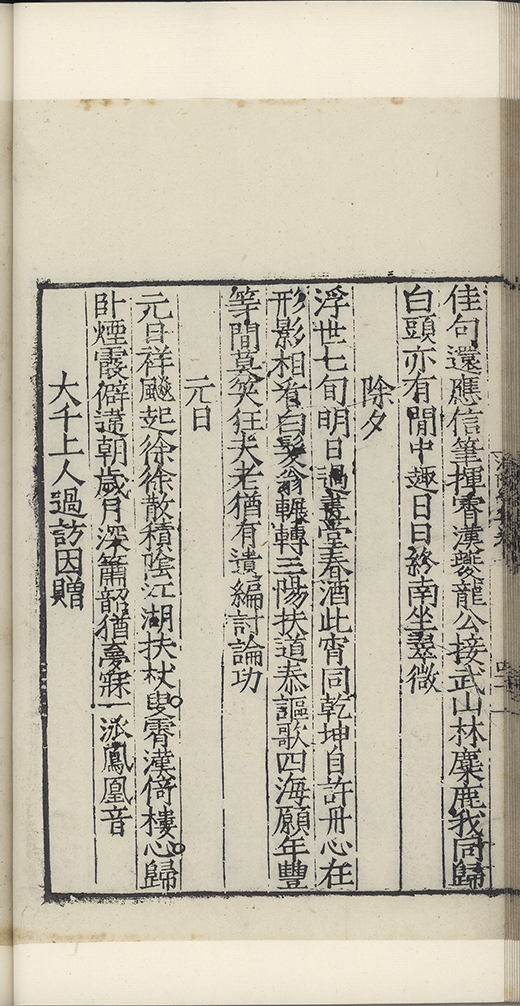 佳句還應信筆揮霄漢夔龍公接武山林麋鹿我同歸
白頭亦有閒中趣日日終南坐翠微
除夕
浮世七旬明日過書堂春酒此宵同乾坤自許丹心在
形影相看白髮翁輾轉三陽扶道泰謳歌四海願年豐
等閒莫笑狂夫老猶有遺編討論功
元日
元日祥飈起徐徐散積陰江湖扶杖叟霄漢倚樓心歸
卧煙霞僻違朝歲月深簫韶猶夢寐一派鳳凰音
大千上人過訪因贈